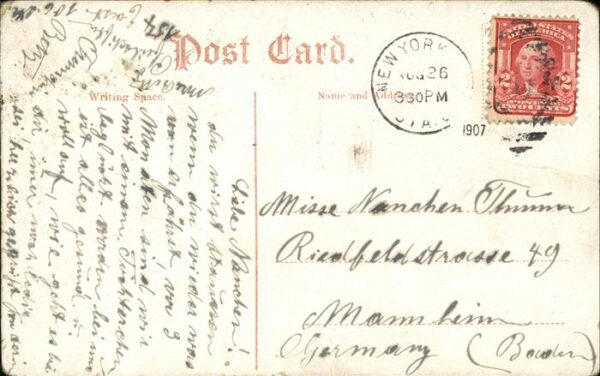 Post Card.
Writing Space.
Name and Address
NEW YORK
AUG 26
3 30 PM
STA.
1907
UNITED STATES
OF AMERICA
2 2
TWO CENTS
Misse Nanchen Thumm
Riedfeldstrasse 49
Mannheim
Germany (Baden)
Liebe Nanchen!
du wirst staunen
wenn du wieder was
von erfährst vor 3
Monaten sind wir
mit einem Töchterchen
beglückt worden bei uns
ist alles gesund u.
wohlauf, wie geht es bei
dir immer noch
sei herzlich gegrüßt
154